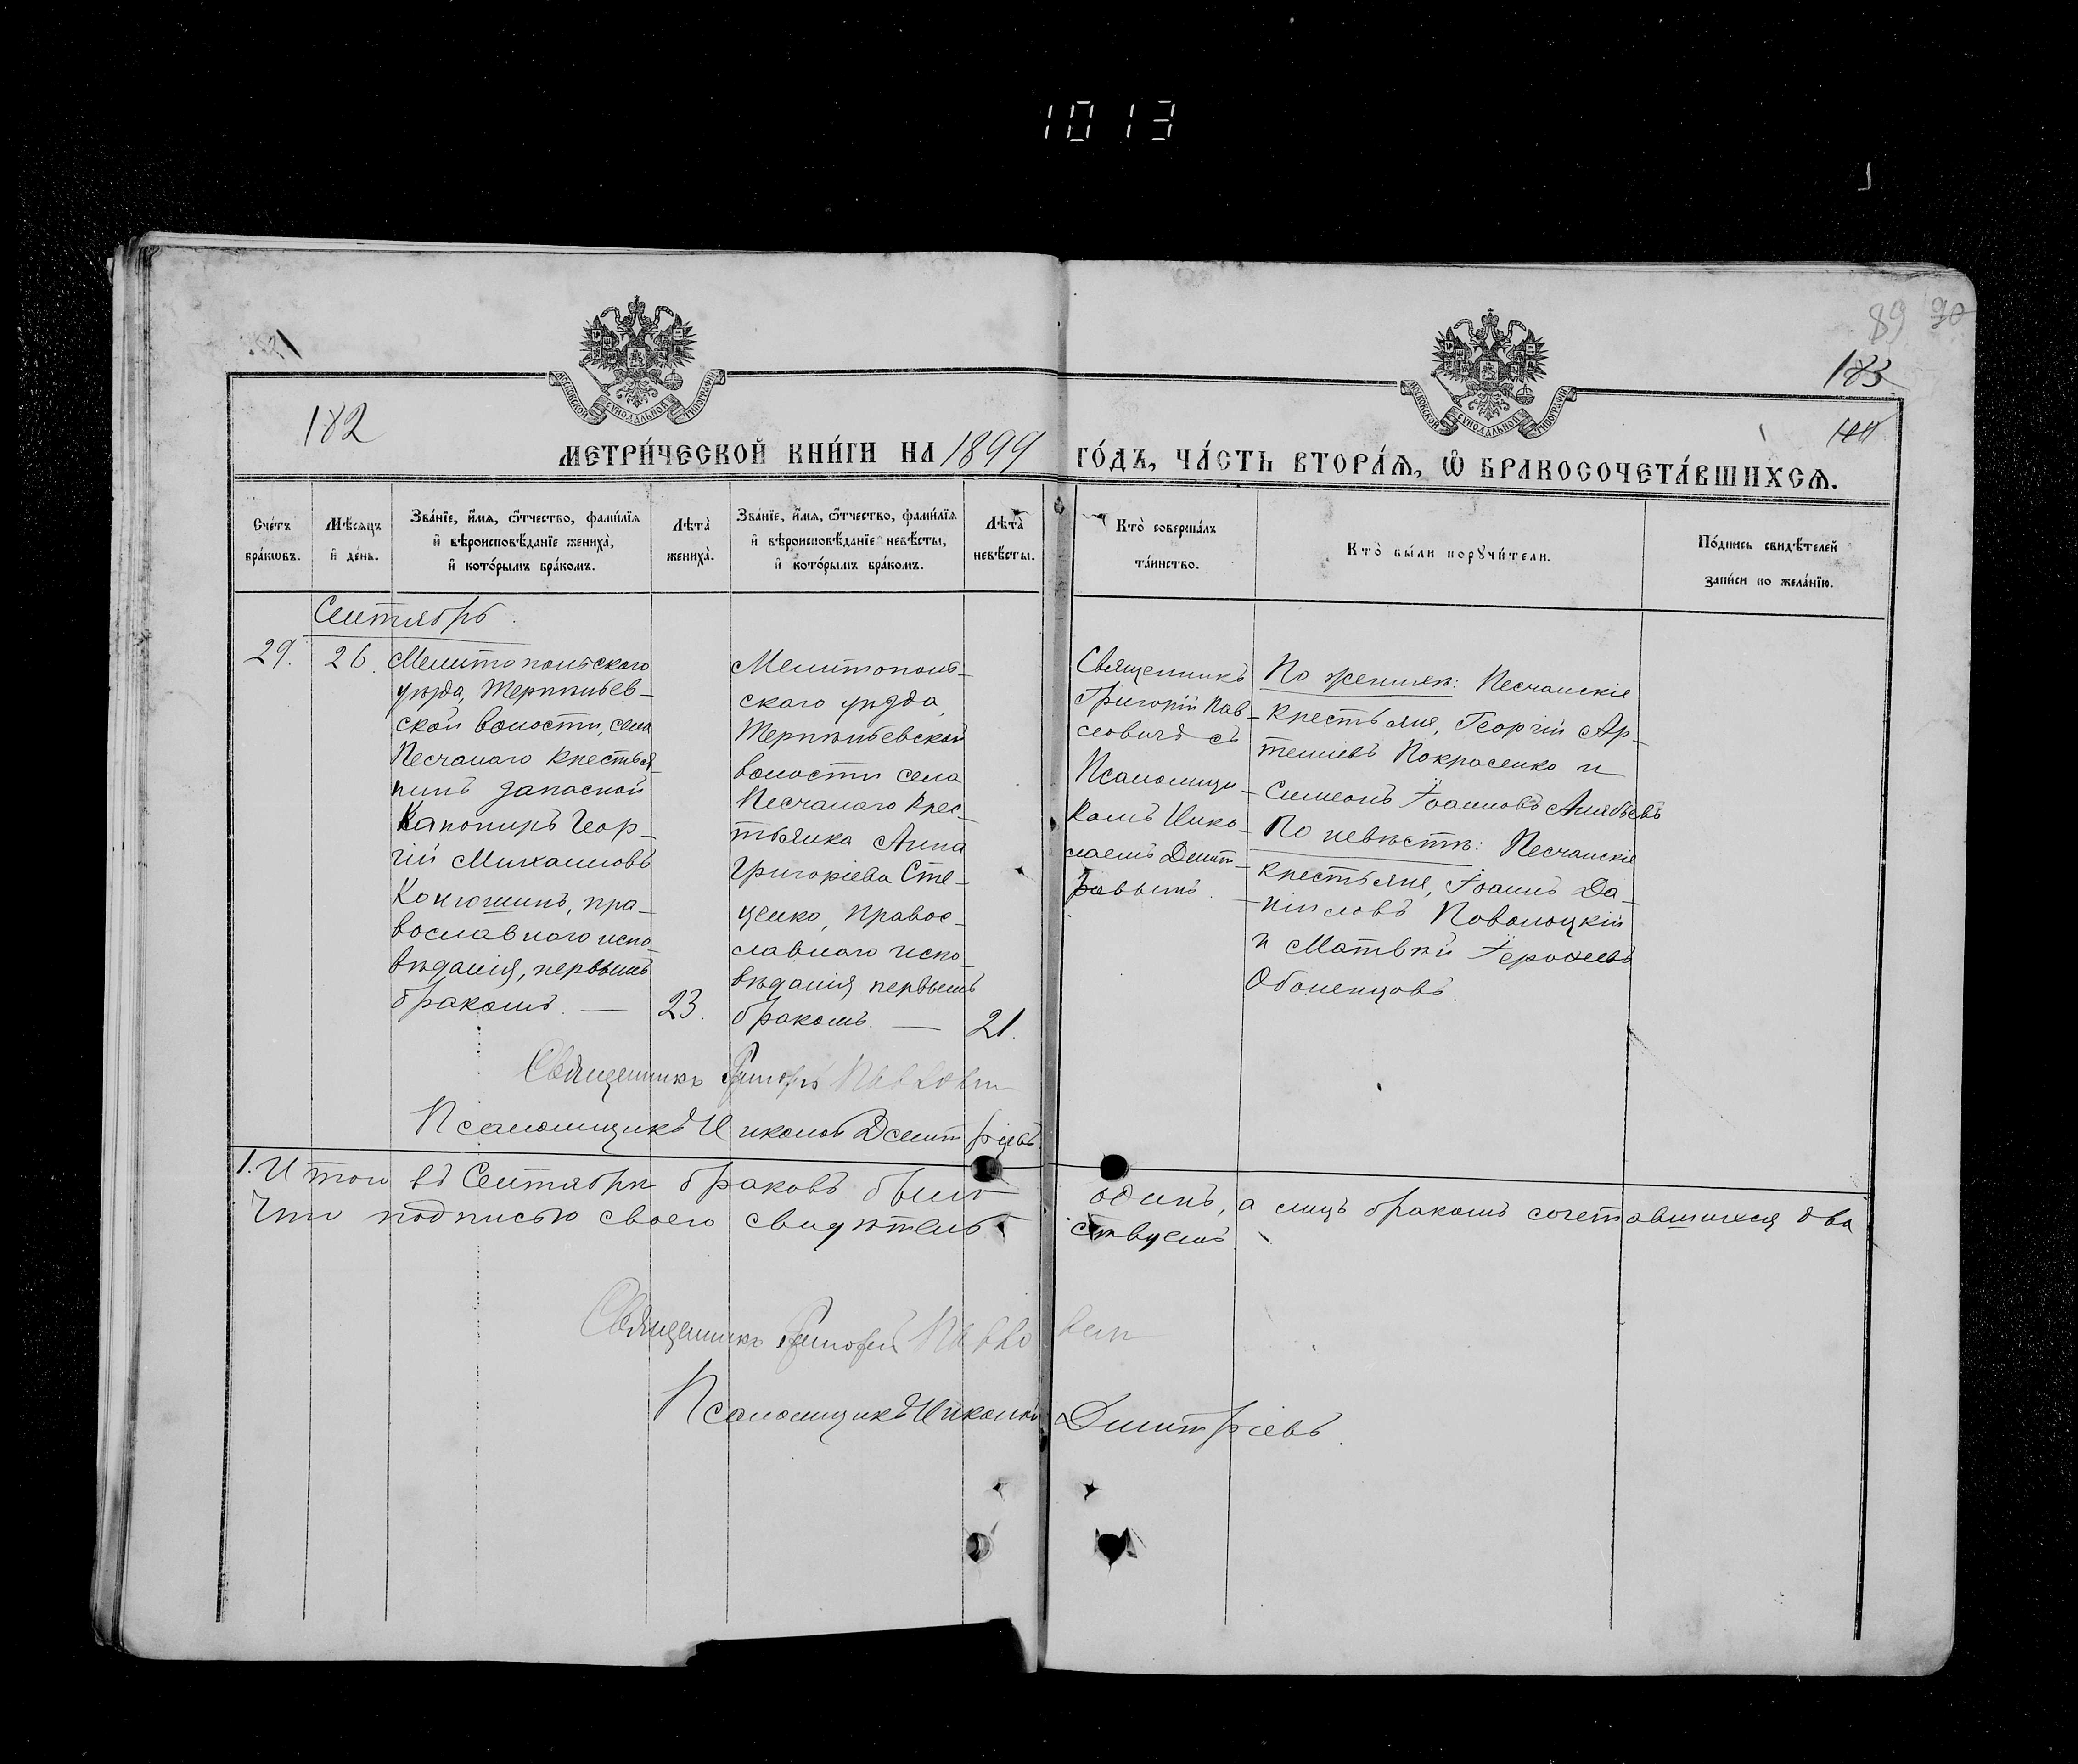 1013
89 90
183
182
МЕТРИ́ЧЕСКОЙ КНИ́ГИ НА 1899 ГО́ДЪ, ЧА́СТЬ ВТОРА́Ѧ, Ѡ҆ БРАКОСОЧЕТА́ВШИХСѦ.
Сче́тъ
бра́кѡвъ.
Мѣ́сяцъ
и҆ де́нь.
Зва́нїе, и҆́мѧ, ѻ҆́тчество, фами́лїѧ
и҆ вѣроисповѣ́данїе жениха̀,
и҆ кото́рымъ бра́комъ.
Лѣ́та̀
жениха̀.
Зва́нїе, и҆́мѧ, ѻ҆́тчество, фами́лїѧ
и҆ вѣроисповѣ́данїе невѣ́сты,
и҆ кото́рымъ бра́комъ.
Лѣ́та̀
невѣ́сты.
Кто̀ соверша́лъ
та́инство.
Кто̀ бы́ли порꙋчи́тели.
По́дпись свидѣ́телей
за́писи по жела́нїю.
Сентябрь.
29.
26.
Мелитопольскаго
уѣзда, Терпѣніев-
ской волости, села
Песчанаго крестья-
нинъ запасной
Канониръ Геор-
гій Михаиловъ
Конюшинъ, пра-
вославнаго испо-
вѣданія, первымъ
бракомъ. —
23.
Мелитополь-
скаго уѣзда,
Терпѣніевской
волости села
Песчанаго крес-
тьянка Анна
Григоріева Сте-
ценко, правос-
лавнаго испо-
вѣданія первымъ
бракомъ. —
21.
Священникъ
Григорій Пав-
ловичъ съ
Псаломщи-
комъ Нико-
лаемъ Димит-
ріевымъ.
По женихѣ: Песчанскіе
крестьяне, Георгій Ар-
темиевъ Покрасенко и
Симеонъ Іоанновъ Алябьевъ
По невѣстѣ: Песчанскіе
крестьяне, Іоаннъ Да-
ніиловъ Поволоцкій
и Матвѣй
Оболенцовъ.
Священникъ Григорій Павлович
Псаломщикъ Николай Димитріевъ
1. Итого въ Сентябрѣ браковъ было одинъ, а лицъ бракомъ сочетавшихся два
Что подписью своею свидѣтельствуемъ
Священникъ Григорій Павлович
Псаломщикъ Николай Димитріевъ.